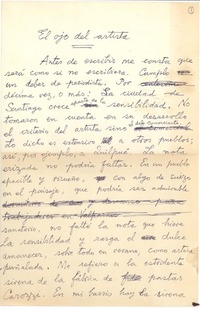 1
El ojo del artista
Antes de escribir me consta que
será como si no escribiera. Cumplo
un deber de periodista. Por
décima vez, o más: La ciudad de
Santiago crece aparte de la sensibilidad. No
tomaron en cuenta en su desarrollo
el criterio del artista sino
Lo dicho es extensivo a otros pueblos;
así, por ejemplo, a Quilpué. La nota
erizada no podría faltar. En un pueblo
apacible y risueño, con algo de suizo
en el paisaje, que podría ser admirable
sanatorio, no falló la nota que hiere
la sensibilidad y rasga el dulce
amanecer, sobre todo en verano, como artera
puñalada. Me refiero a la estridente
sirena de la fábrica de pastas
Carozzi. En mi barrio hay la sirena